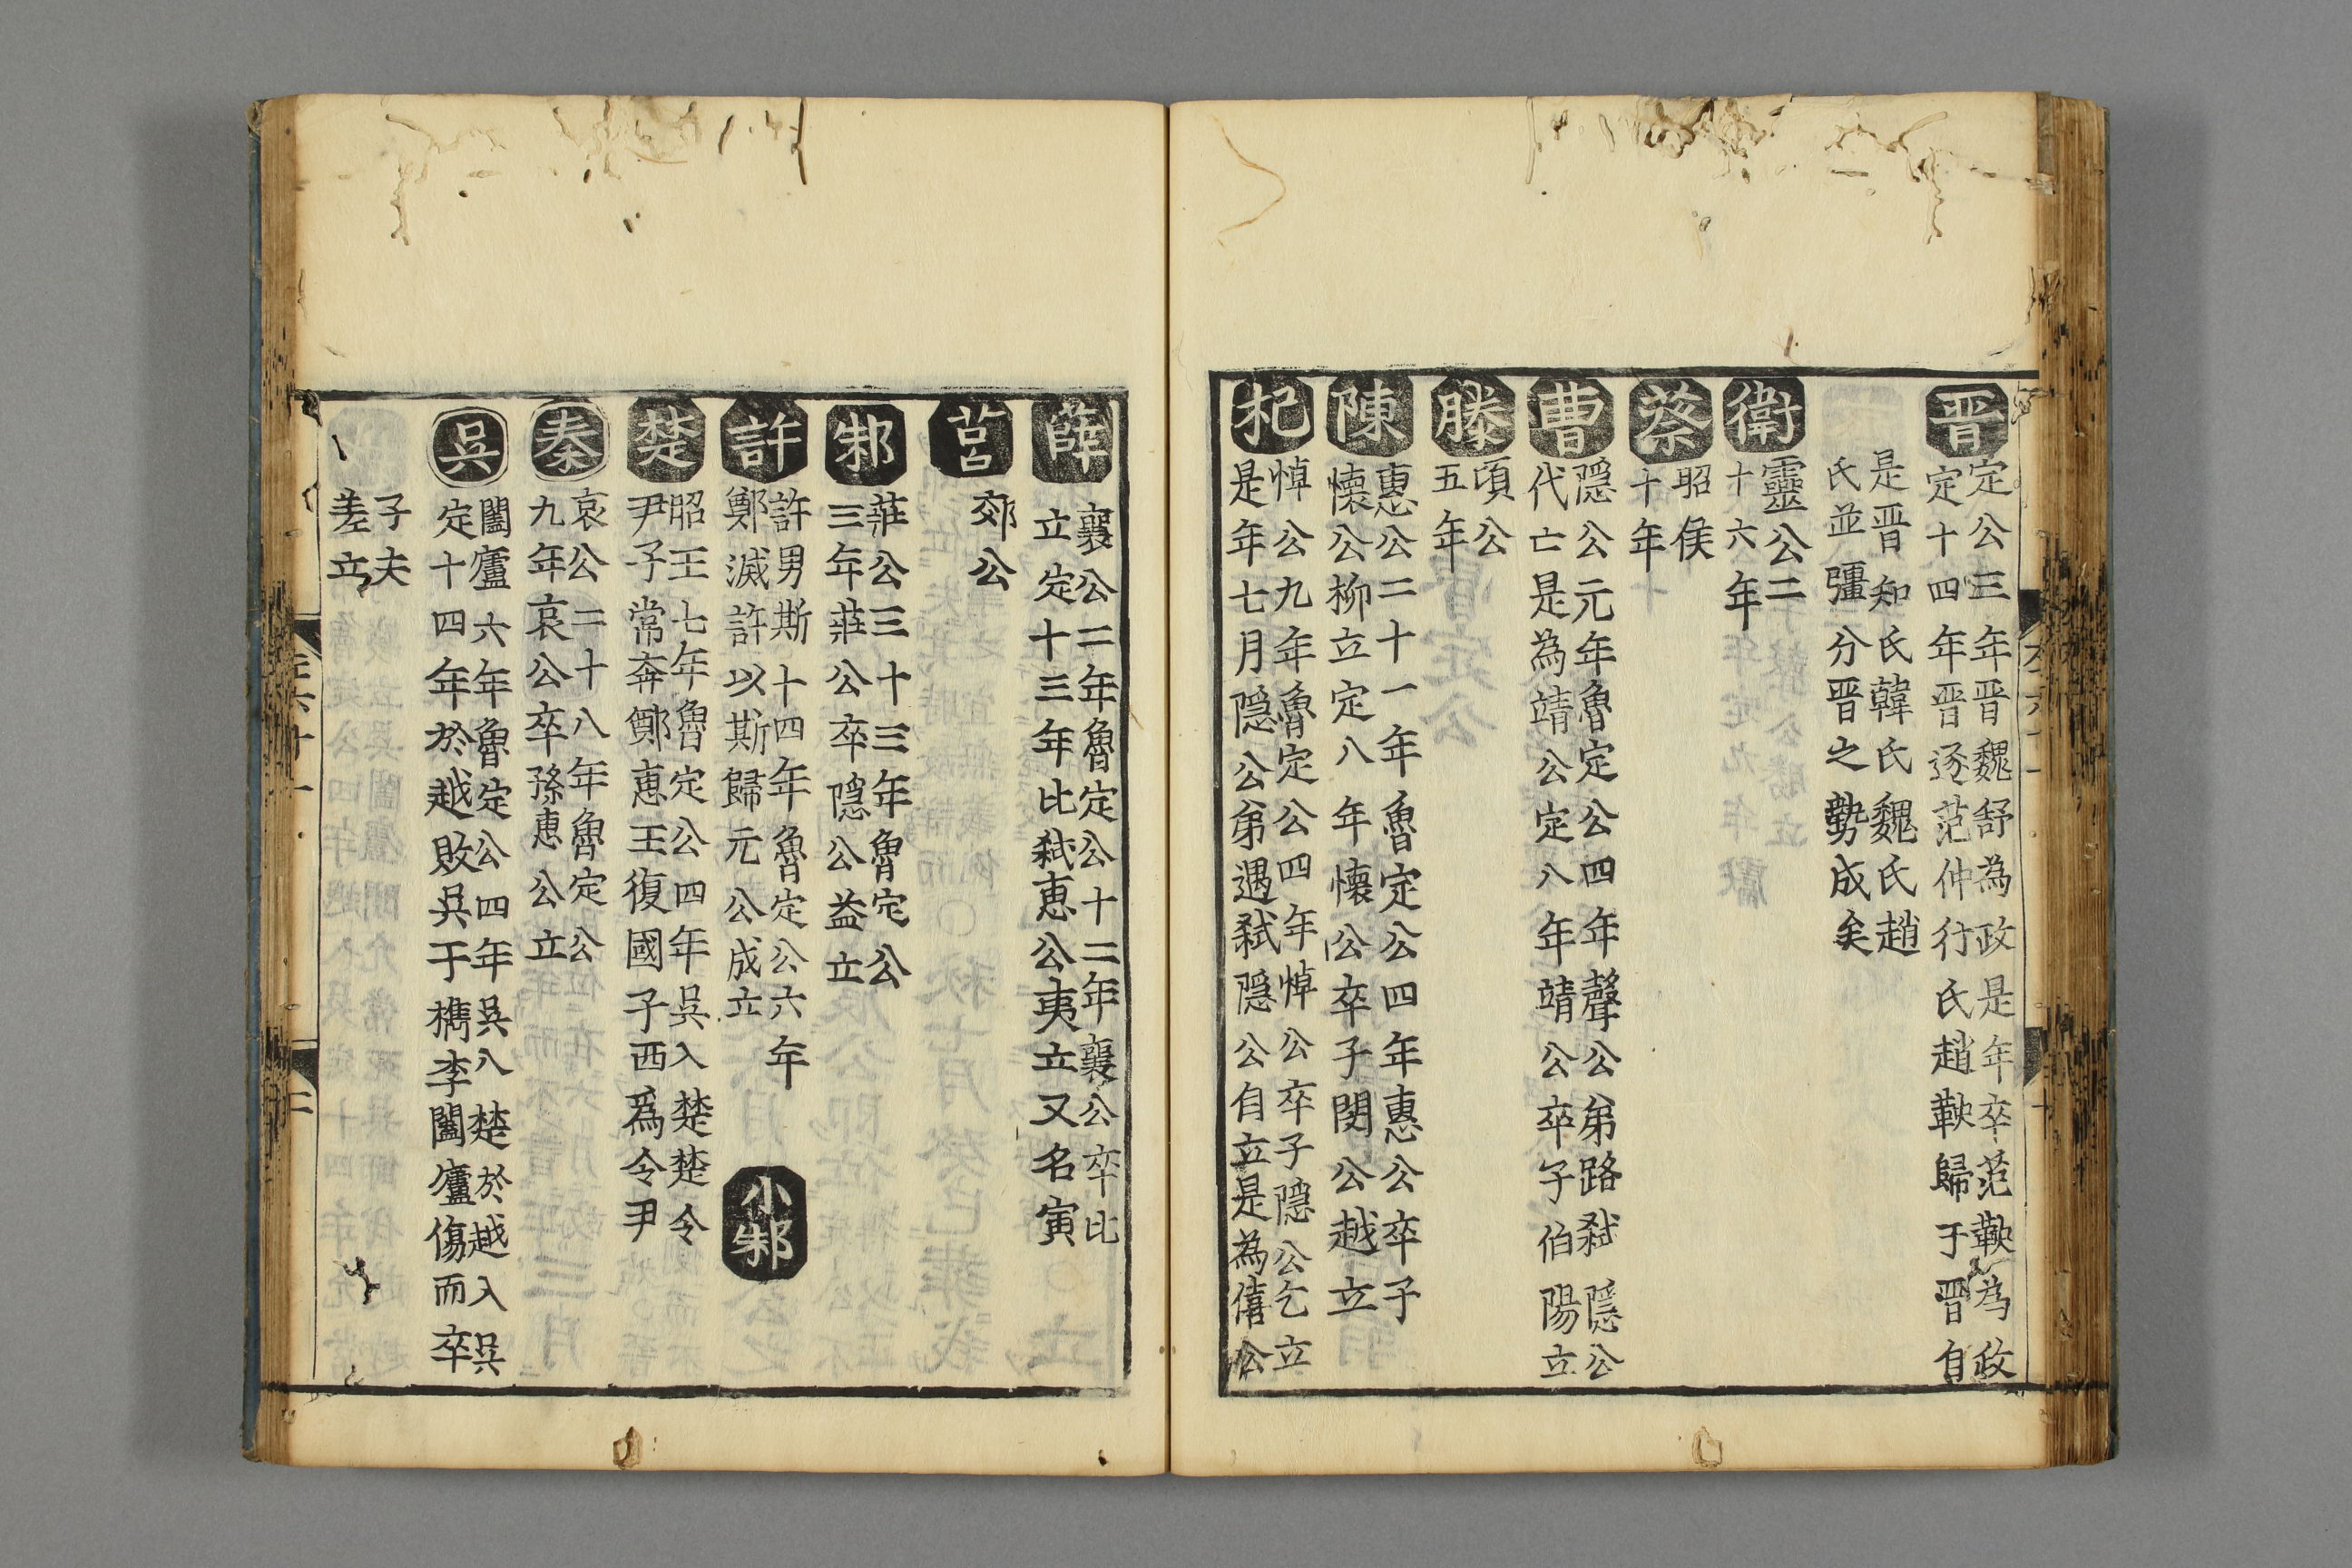 晋
定公三年晋魏舒為政是年卒范鞅為政
定十四年晋逐范仲行氏趙鞅歸于晋自
是晋知氏韓氏魏氏趙
氏並彊分晋之勢成矣
衛
靈公二
十六年
蔡
昭侯
十年
曹
隱公元年魯定公四年聲公弟路弑隱公
代亡是為靖公定八年靖公卒子伯陽立
滕
頃公
五年
陳
惠公二十一年魯定公四年惠公卒子
懷公柳立定八年懷公卒子閔公越立
杞
悼公九年魯定公四年悼公卒子隱公乞立
是年七月隱公弟遇弑隱公自立是為僖公
薛
襄公二年魯定公十二年襄公卒比
立定十三年比弑惠公夷立又名寅
莒
郊公
邾
莊公三十三年魯定公
三年莊公卒隱公益立
許
許男斯十四年魯定公六年
鄭滅許以斯歸元公成立
小邾
楚
昭王七年魯定公四年吳入楚楚令
尹子常奔鄭惠王復國子西爲令尹
秦
哀公二十八年魯定公
九年哀公卒孫惠公立
吳
闔廬六年魯定公四年吳入楚於越入吳
定十四年於越敗吳于檇李闔廬傷而卒
子夫
差立